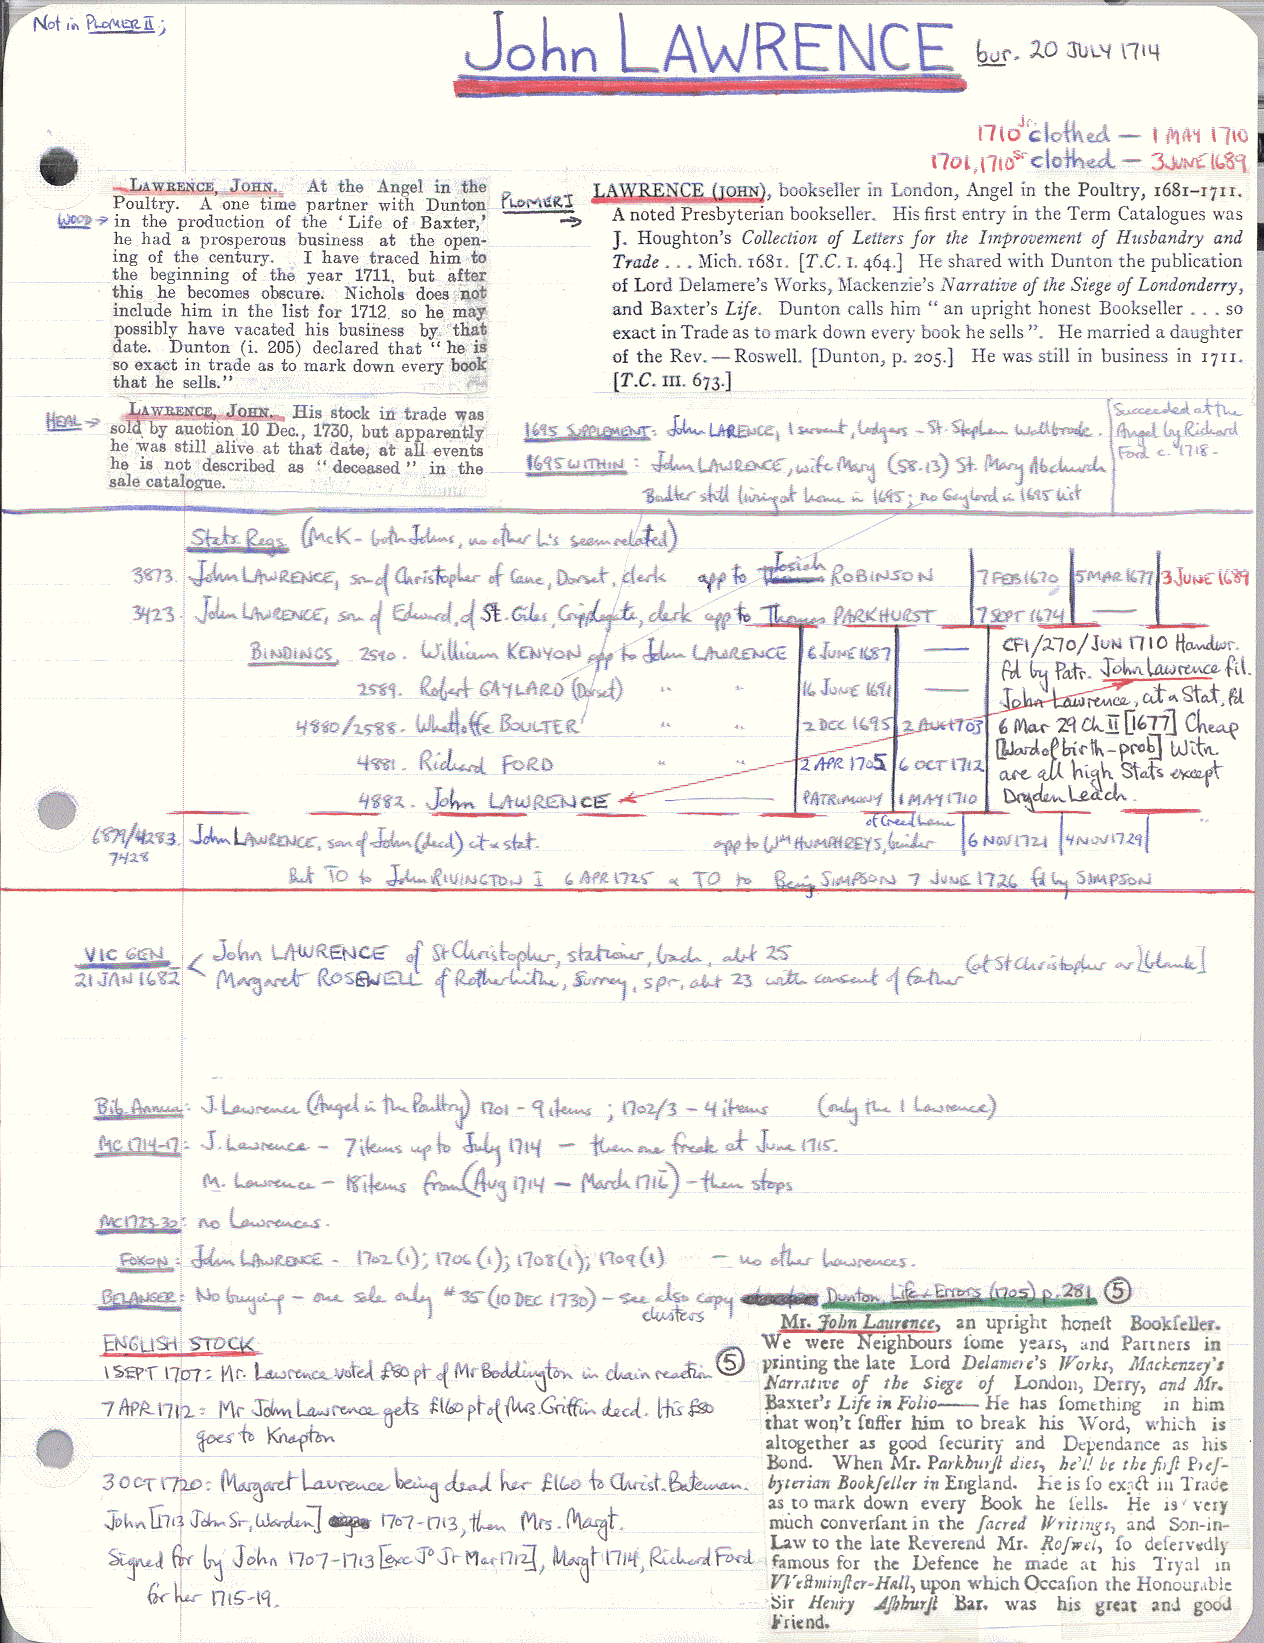 Not in PLOMER II;
John LAWRENCE bur. 20 JULY 1714
1710 Jr. clothed — 1 MAY 1710
1701, 1710 Sr clothed — 3 JUNE 1689
WOOD →
LAWRENCE, JOHN. At the Angel in the
Poultry. A one time partner with Dunton
in the production of the 'Life of Baxter,'
he had a prosperous business at the open-
ing of the century. I have traced him to
the beginning of the year 1711, but after
this he becomes obscure. Nichols does not
include him in the list for 1712, so he may
possibly have vacated his business by that
date. Dunton (i. 205) declared that "he is
so exact in trade as to mark down every book
that he sells."
HEAL →
LAWRENCE, JOHN. His stock in trade was
sold by auction 10 Dec., 1730, but apparently
he was still alive at that date, at all events
he is not described as "deceased" in the
sale catalogue.
PLOMER I →
LAWRENCE (JOHN), bookseller in London, Angel in the Poultry, 1681–1711.
A noted Presbyterian bookseller. His first entry in the Term Catalogues was
J. Houghton's Collection of Letters for the Improvement of Husbandry and
Trade . . . Mich. 1681. [T.C. I. 464.] He shared with Dunton the publication
of Lord Delamere's Works, Mackenzie's Narrative of the Siege of Londonderry,
and Baxter's Life. Dunton calls him "an upright honest Bookseller . . . so
exact in Trade as to mark down every book he sells". He married a daughter
of the Rev. — Roswell. [Dunton, p. 205.] He was still in business in 1711.
[T.C. III. 673.]
1695 SUPPLEMENT: John LARENCE, 1 servant, lodgers – St. Stephen Wallbrook.
1695 WITHIN: John LAWRENCE, wife Mary (58.13) St. Mary Abchurch
Boulter still living at home in 1695; no Gaylord in 1695 list
Succeeded at the
Angel by Richard
Ford c. 1718-
Stats. Regs (McK – both Johns, no other L's seem related)
3873. John LAWRENCE, son of Christopher of Cane, Dorset, clerk app to Josiah ROBINSON 7 FEB 1670 5 MAR 1677 3 JUNE 1689
3423. John LAWRENCE, son of Edward, of St. Giles, Cripplegate, clerk app to Thomas PARKHURST 7 SEPT 1674 —
BINDINGS 2590. William KENYON app to John LAWRENCE 6 JUNE 1687 —
2589. Robert GAYLARD (Dorset) " " 16 JUNE 1691 —
4880/2588. Whettoffe BOULTER " " 2 DEC 1695 2 AUG 1703
4881. Richard FORD " " 2 APR 1705 6 OCT 1712
4882. John LAWRENCE PATRIMONY 1 MAY 1710
CF1/270/JUN 1710 Handwr.
fd by Patr. John Lawrence fil.
John Lawrence, cit & Stat, fd
6 Mar 29 Ch II [1677] Cheap
[Ward of birth – prob] Witn.
are all high Stats except
Dryden Leach.
6879/4283. John LAWRENCE, son of John (decd) cit & stat. app to Wm HUMPHREYS, binder of Creed Lane 6 NOV 1721 4 NOV 1729
7428
But TO to John RIVINGTON I 6 APR 1725 & TO to Benj SIMPSON 7 JUNE 1726 fd by SIMPSON
VIC GEN
21 JAN 1682
John LAWRENCE of St Christopher, stationer, bach, abt 25
Margaret ROSEWELL of Rotherhithe, Surrey, spr, abt 23 with consent of father (at St Christopher or) [blank]
Bib. Annua: J. Lawrence (Angel in the Poultry) 1701 – 9 items; 1702/3 – 4 items (only the 1 Lawrence)
MC 1714-17: J. Lawrence – 7 items up to July 1714 – then one freak at June 1715.
M. Lawrence – 18 items from (Aug 1714 – March 1716) – then stops
MC 1723-30: no Lawrences.
FOXON: John LAWRENCE – 1702 (1); 1706 (1); 1708 (1); 1709 (1) – no other Lawrences.
BELANGER: No buying – one sale only #35 (10 DEC 1730) – see also copy clusters
Dunton, Life & Errors (1705) p. 281 (5)
ENGLISH STOCK
1 SEPT 1707: Mr. Lawrence voted £80 pt of Mr Boddington in chain reaction (5)
7 APR 1712: Mr John Lawrence gets £160 pt of Mrs. Griffin decd. His £80
goes to Knapton
3 OCT 1720: Margaret Laurence being dead her £160 to Christ. Bateman.
John [1713 John Sr, Warden] 1707-1713, then Mrs. Margt.
Signed for by John 1707-1713 [exc Jo Jr Mar 1712], Margt 1714, Richard Ford
for her 1715-19.
Mr. John Laurence, an upright honeſt Bookſeller.
We were Neighbours ſome years, and Partners in
printing the late Lord Delamere's Works, Mackenzey's
Narrative of the Siege of London, Derry, and Mr.
Baxter's Life in Folio—— He has ſomething in him
that won't ſuffer him to break his Word, which is
altogether as good ſecurity and Dependance as his
Bond. When Mr. Parkhurſt dies, he'll be the firſt Preſ-
byterian Bookſeller in England. He is ſo exact in Trade
as to mark down every Book he ſells. He is very
much converſant in the ſacred Writings, and Son-in-
Law to the late Reverend Mr. Roſwel, ſo deſervedly
famous for the Defence he made at his Tryal in
Weſtminſter-Hall, upon which Occaſion the Honourable
Sir Henry Aſhhurſt Bar. was his great and good
Friend.